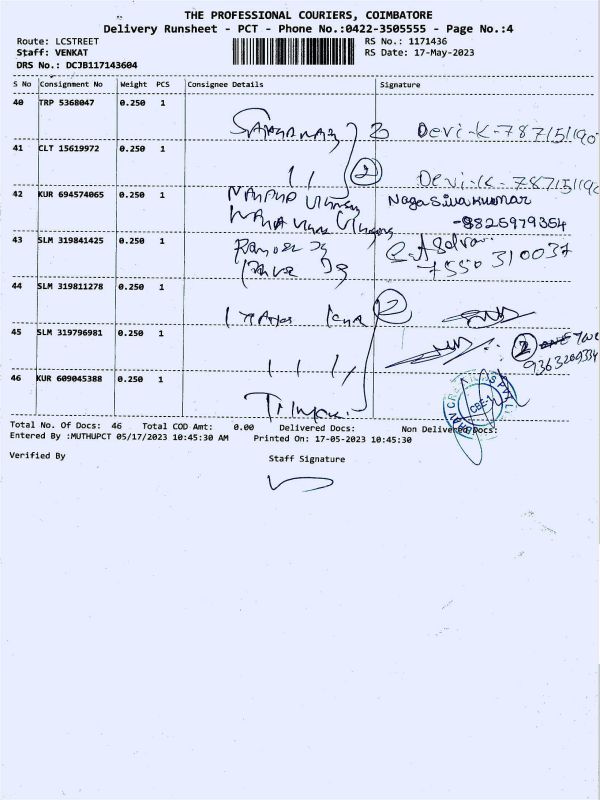 THE PROFESSIONAL COURIERS, COIMBATORE
Delivery Runsheet - PCT - Phone No.:0422-3505555 - Page No.:4
Route: LCSTREET RS No.: 1171436
Staff: VENKAT RS Date: 17-May-2023
DRS No.: DCJB117143604
S No Consignment No Weight PCS Consignee Details Signature
40 TRP 5368047 0.250 1
Devi-K-787151190
41 CLT 15619972 0.250 1
2 Devi-K-787151190
42 KUR 694574065 0.250 1 Nagasivakumar
-8825979354
43 SLM 319841425 0.250 1
7550310037
44 SLM 319811278 0.250 1
2
45 SLM 319796981 0.250 1
2
9363269334
46 KUR 609045388 0.250 1
CBE-1
Total No. Of Docs: 46 Total COD Amt: 0.00 Delivered Docs: Non Delivered Docs:
Entered By :MUTHUPCT 05/17/2023 10:45:30 AM Printed On: 17-05-2023 10:45:30
Verified By Staff Signature